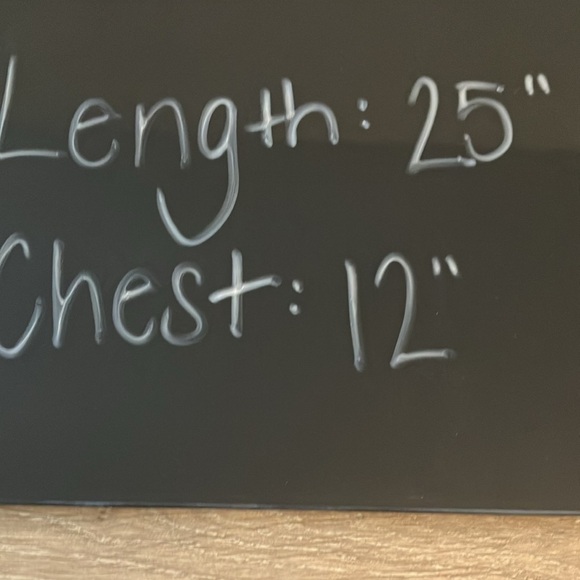 Length: 25"
Chest: 12"